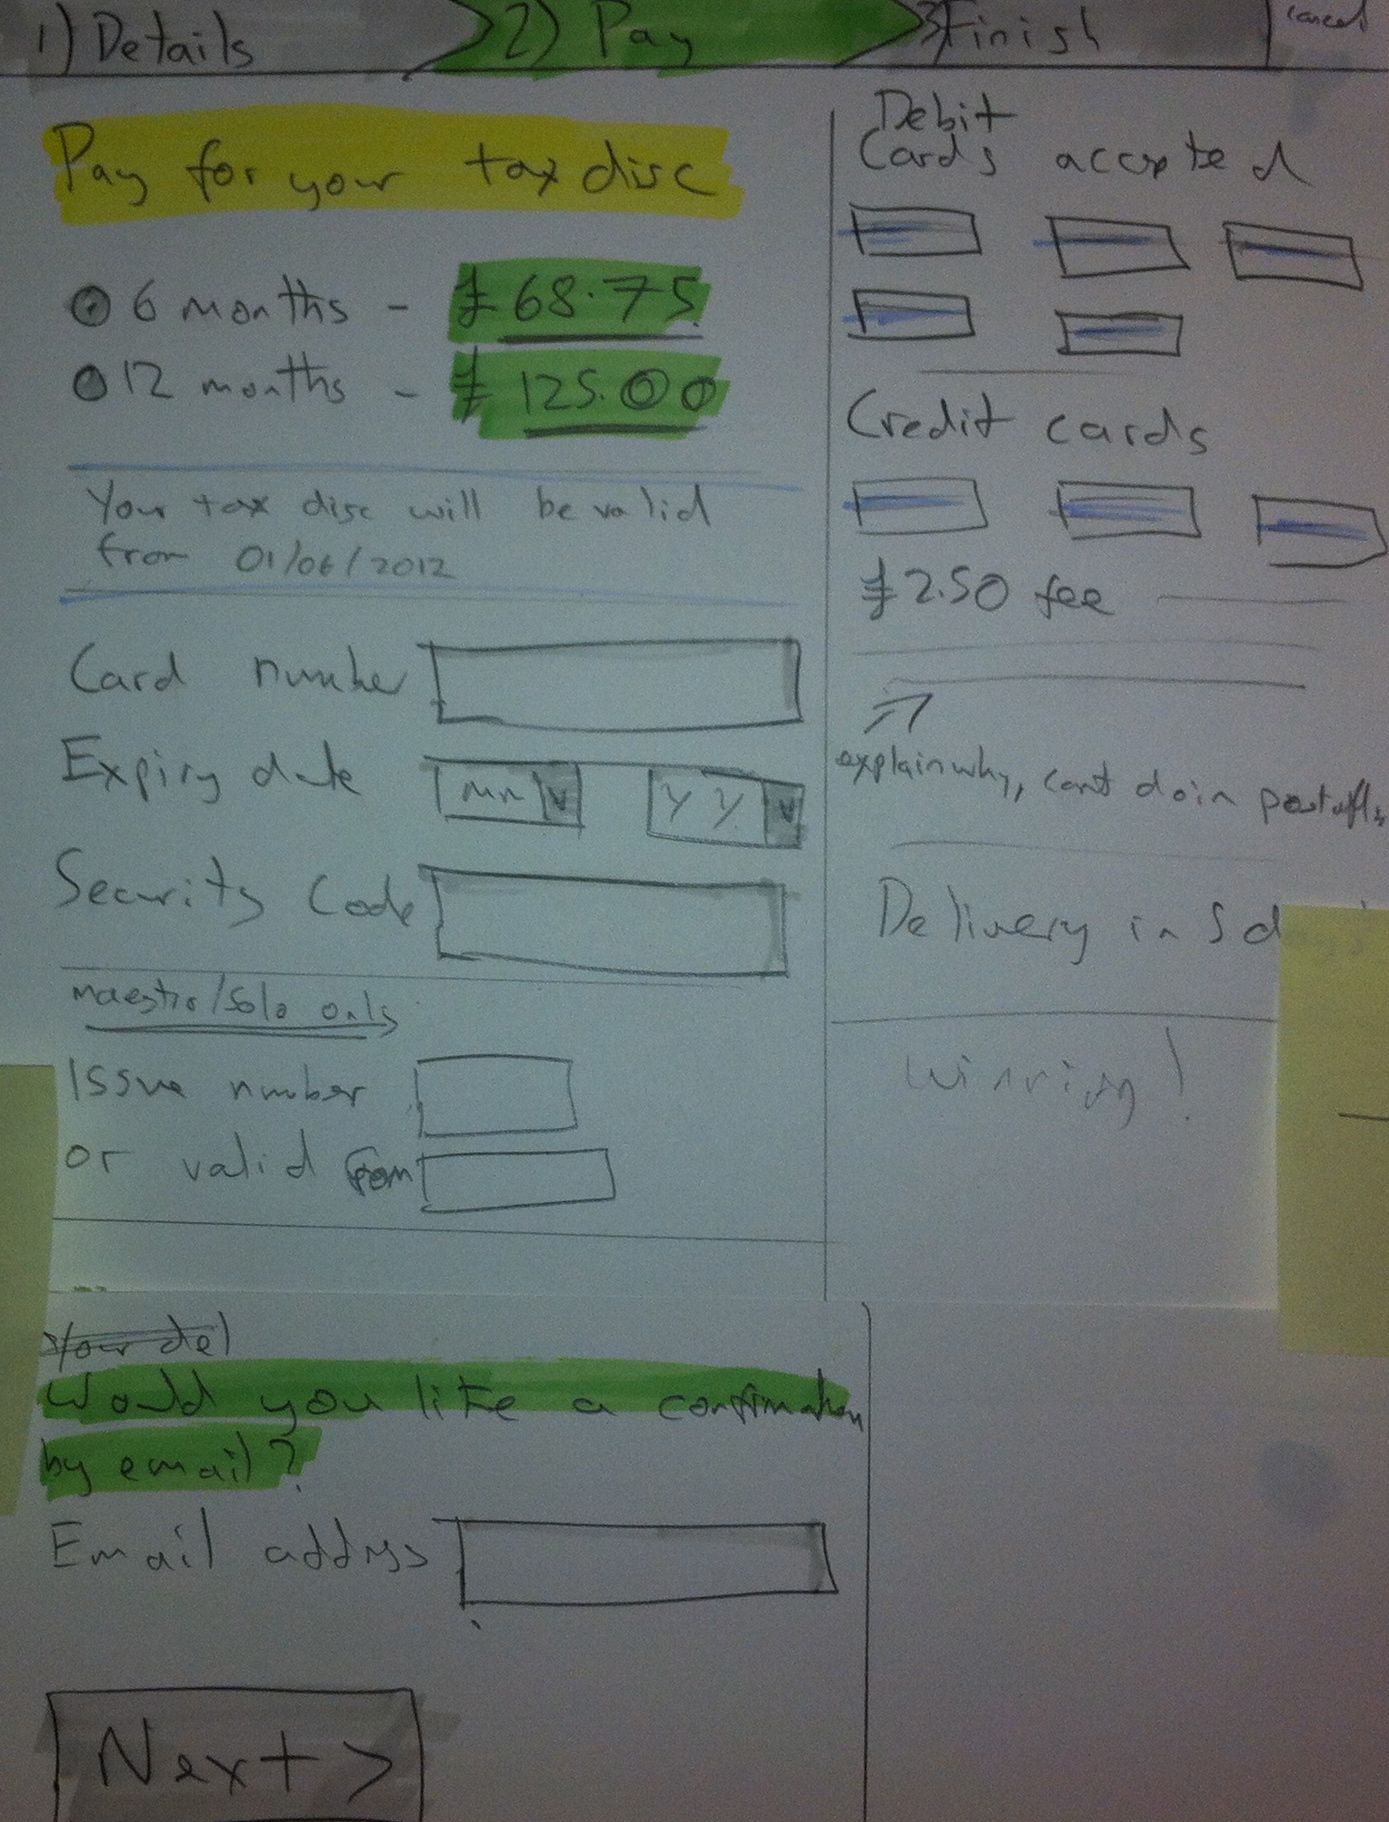 1) Details
2) Pay
3) Finish
cancel
Pay for your tax disc
6 months - £68.75
12 months - £125.00
Your tax disc will be valid
from 01/06/2012
Card number
Expiry date
MM
YY
Security Code
maestro/Solo only
Issue number
or valid from
Your del
Would you like a confirmation
by email?
Email address
Next >
Debit
Cards accepted
Credit cards
£2.50 fee
explain why, cant do in
Delivery in 5 days
Winning!